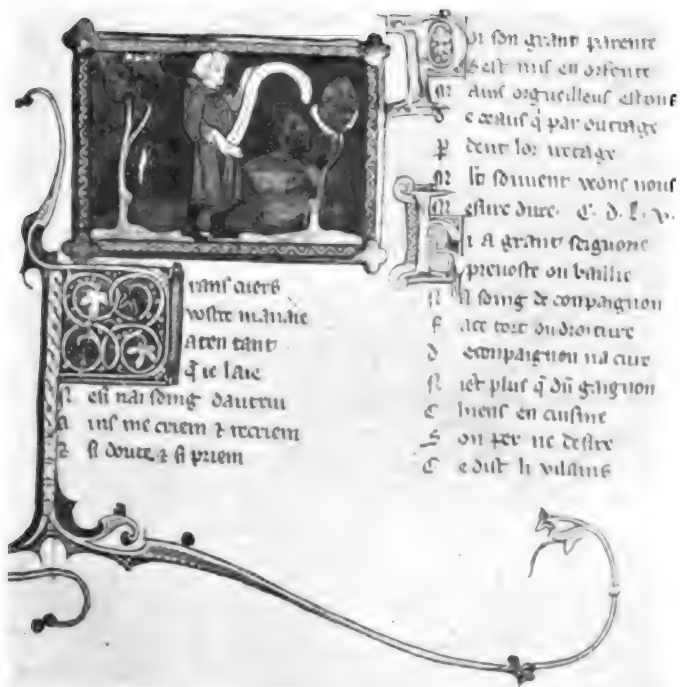 rans cuers
vostre manaie
aten tant
q̃ ie laie
N en nai soing dautrui
A ins me criem ⁊ recriem
⁊ si doute ⁊ si priem
Por son grant parente
s est mis en orfente
M ains orgueilleus estons
d e ceaus q̃ par outrage
p dent lor
M lt souvent veons nous
M C. d. l. v.
Ki a grant seignorie
prevoste ou baillie
N a soing de conpaignon
F ace tort ou droiture
d econpaignon na cure
N ient plus q̃ dũ gaignon
C hiens en cuisine
S on per ne desire
C e dist li vilains